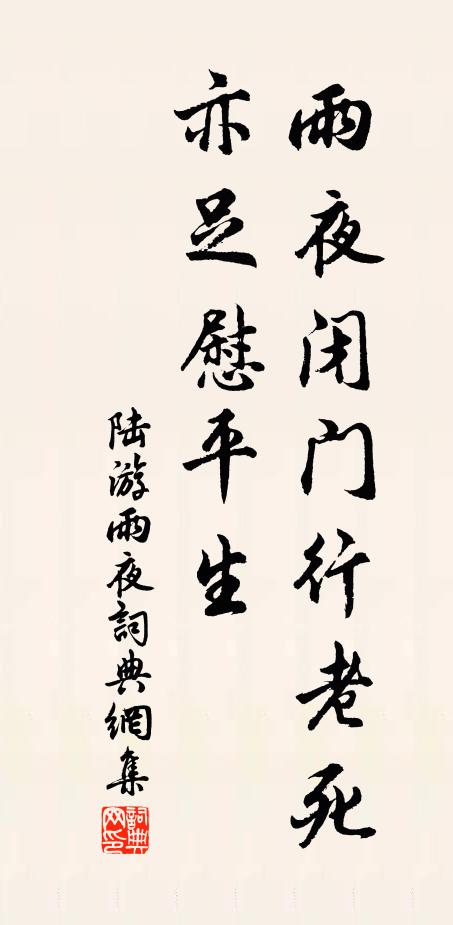 雨夜闭门行老死
亦足慰平生
陆游雨夜詞典網集
詞典网印